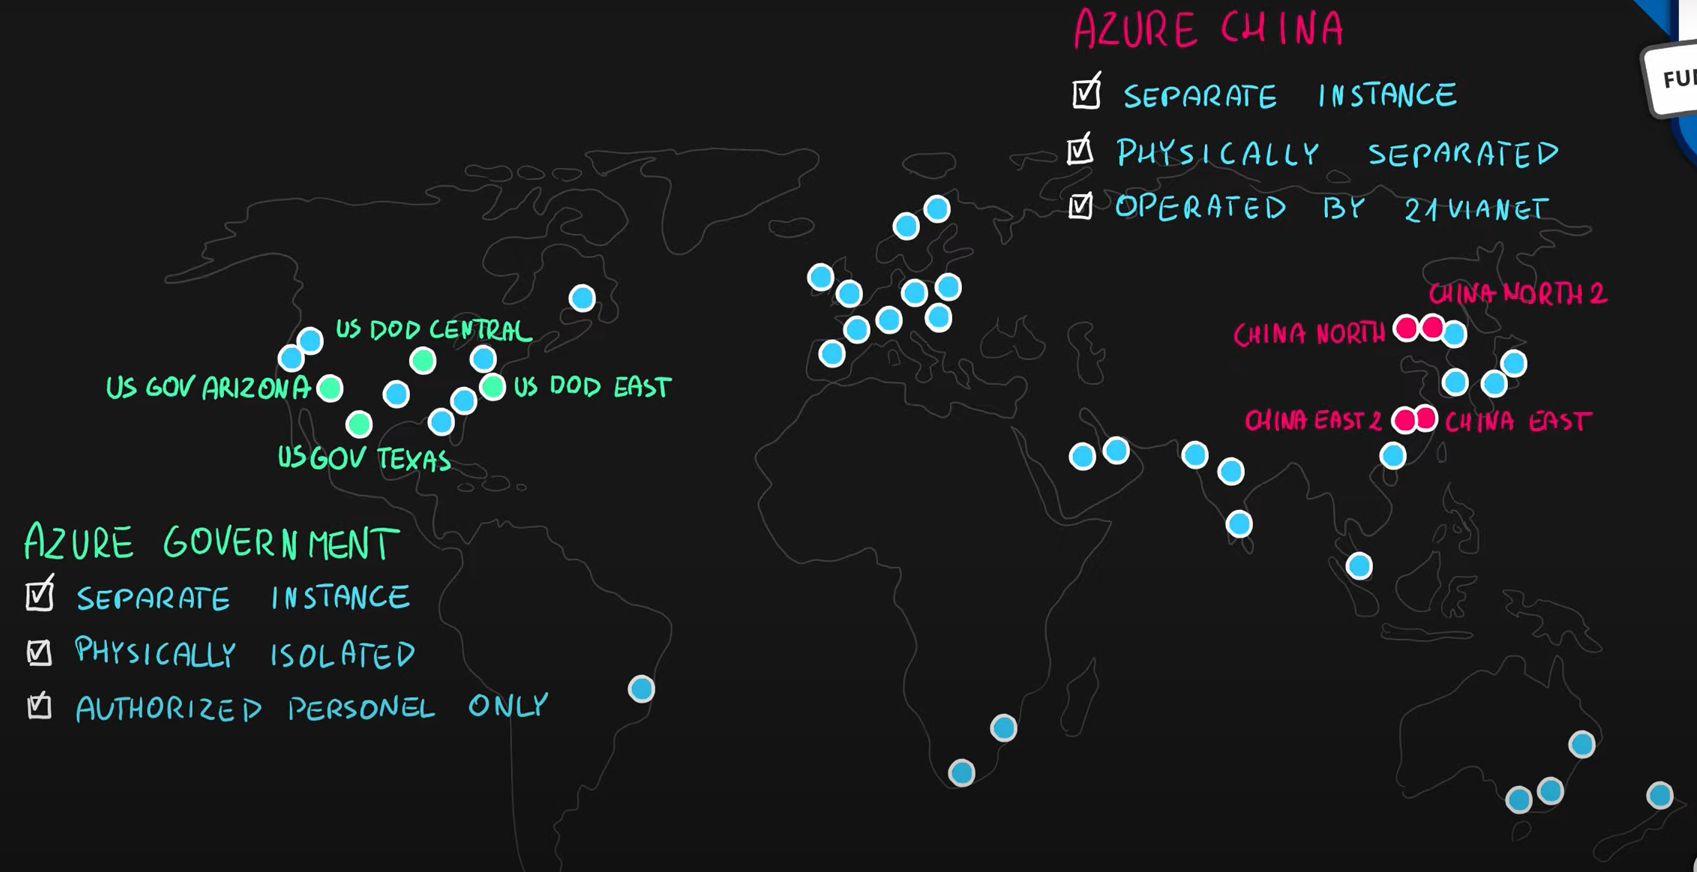 AZURE CHINA
SEPARATE INSTANCE
PHYSICALLY SEPARATED
OPERATED BY 21VIANET
CHINA NORTH 2
CHINA NORTH
CHINA EAST 2
CHINA EAST
US DOD CENTRAL
US GOV ARIZONA
US DOD EAST
US GOV TEXAS
AZURE GOVERNMENT
SEPARATE INSTANCE
PHYSICALLY ISOLATED
AUTHORIZED PERSONEL ONLY